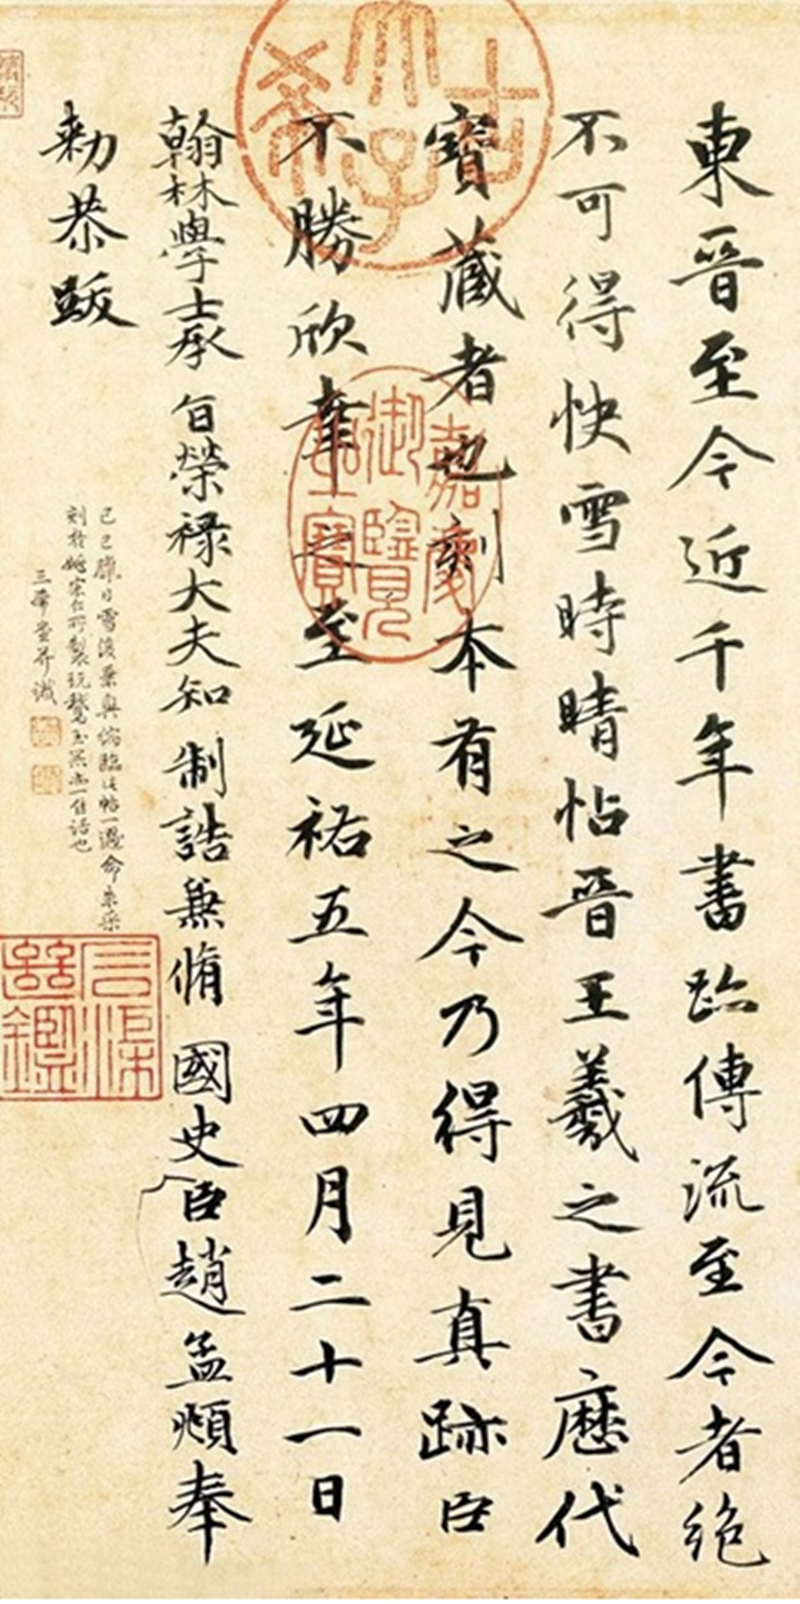 東晉至今近千年書跡傳流至今者絕
不可得快雪時晴帖晉王羲之書歷代
寶藏者也刻本有之今乃得見真跡臣
不勝欣幸之至延祐五年四月二十一日
翰林學士承旨榮祿大夫知制誥兼脩國史臣趙孟頫奉
勑恭跋
己巳臘日雪後乘興偶臨此帖一過命朱采
刻於姚宗仁所製玩鵞玉器亦一佳話也
三希堂并識
古希天子
嘉慶御覽之寶